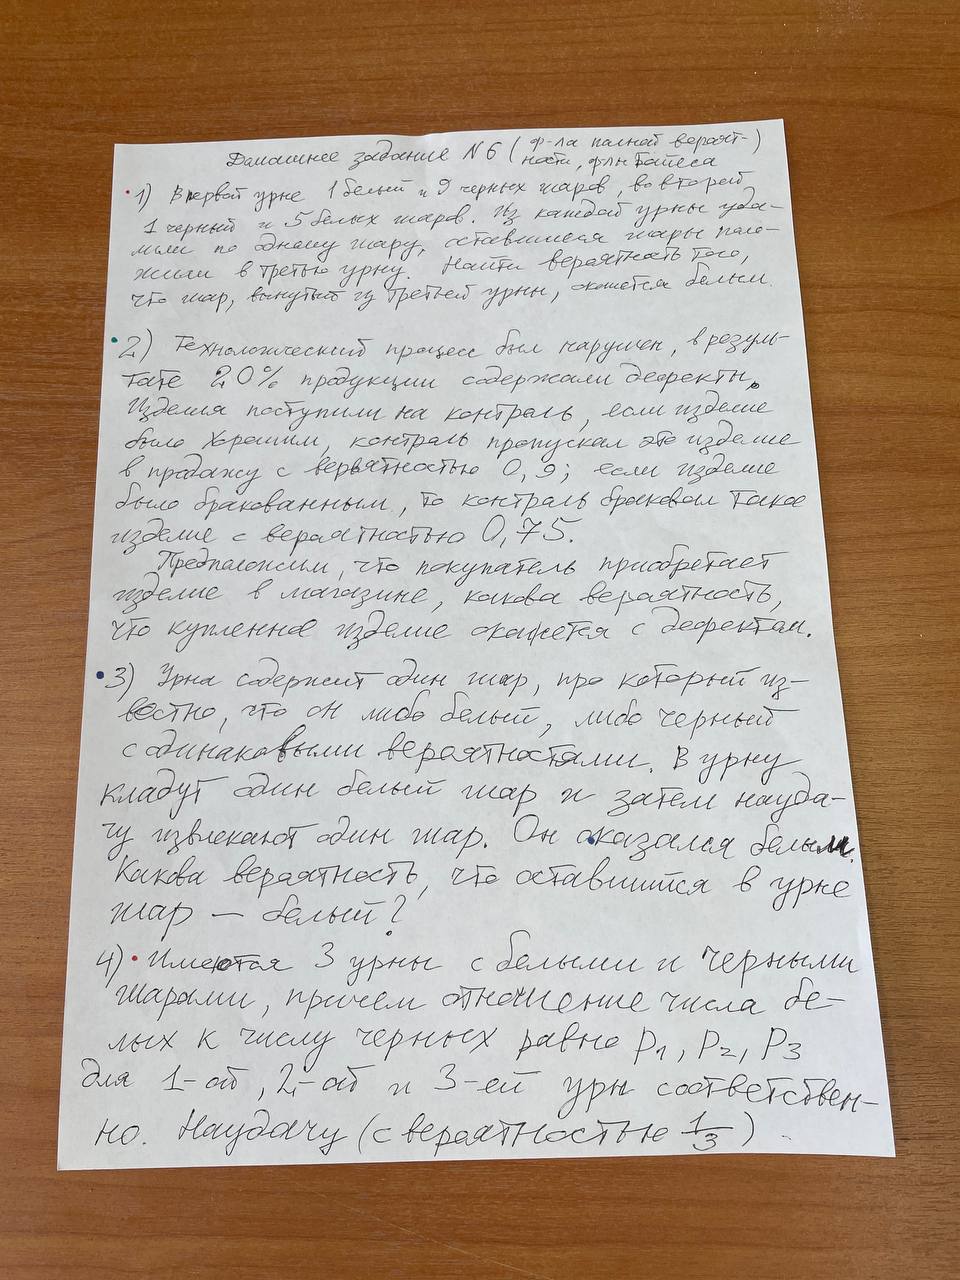 Домашнее задание N 6 ( ф-ла полной вероят- )
ности, ф-ла Байеса
1) В первой урне 1 белый и 9 черных шаров, во второй
1 черный и 5 белых шаров. Из каждой урны уда-
лили по одному шару, оставшиеся шары поло-
жили в третью урну. Найти вероятность того,
что шар, вынутый из третьей урны, окажется белым.
2) Технологический процесс был нарушен, в резуль-
тате 20% продукции содержали дефекты.
Изделия поступили на контроль, если изделие
было хорошим, контроль пропускал это изделие
в продажу с вероятностью 0,9; если изделие
было бракованным, то контроль браковал такое
изделие с вероятностью 0,75.
Предположим, что покупатель приобретает
изделие в магазине, какова вероятность,
что купленное изделие окажется с дефектом.
3) Урна содержит один шар, про который из-
вестно, что он либо белый, либо черный
с одинаковыми вероятностями. В урну
кладут один белый шар и затем науда-
чу извлекают один шар. Он оказался белым.
Какова вероятность, что оставшийся в урне
шар — белый?
4) Имеются 3 урны с белыми и черными
шарами, причем отношение числа бе-
лых к числу черных равно p1, p2, p3
для 1-ой, 2-ой и 3-ей урн соответствен-
но. Наудачу (с вероятностью 1/3)